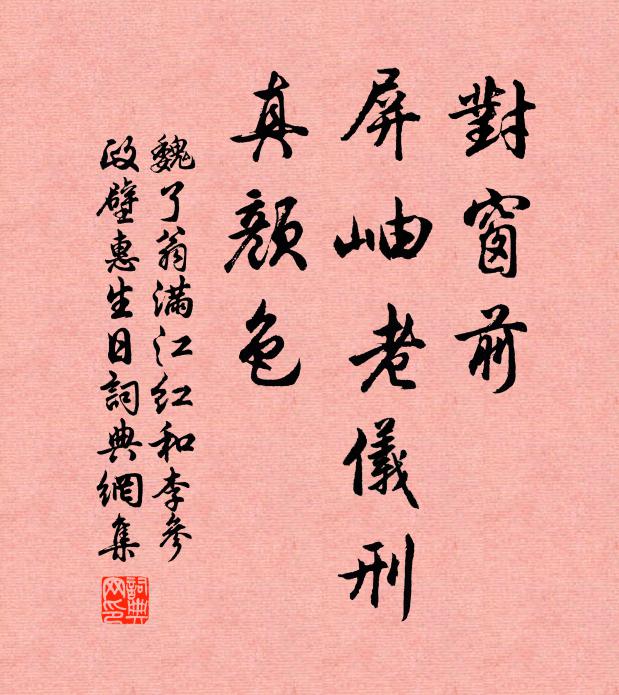 對窗前
屏岫老儀刑
真顏色
魏了翁滿江红和李參
政壁惠生日詞典網集
詞典
网印